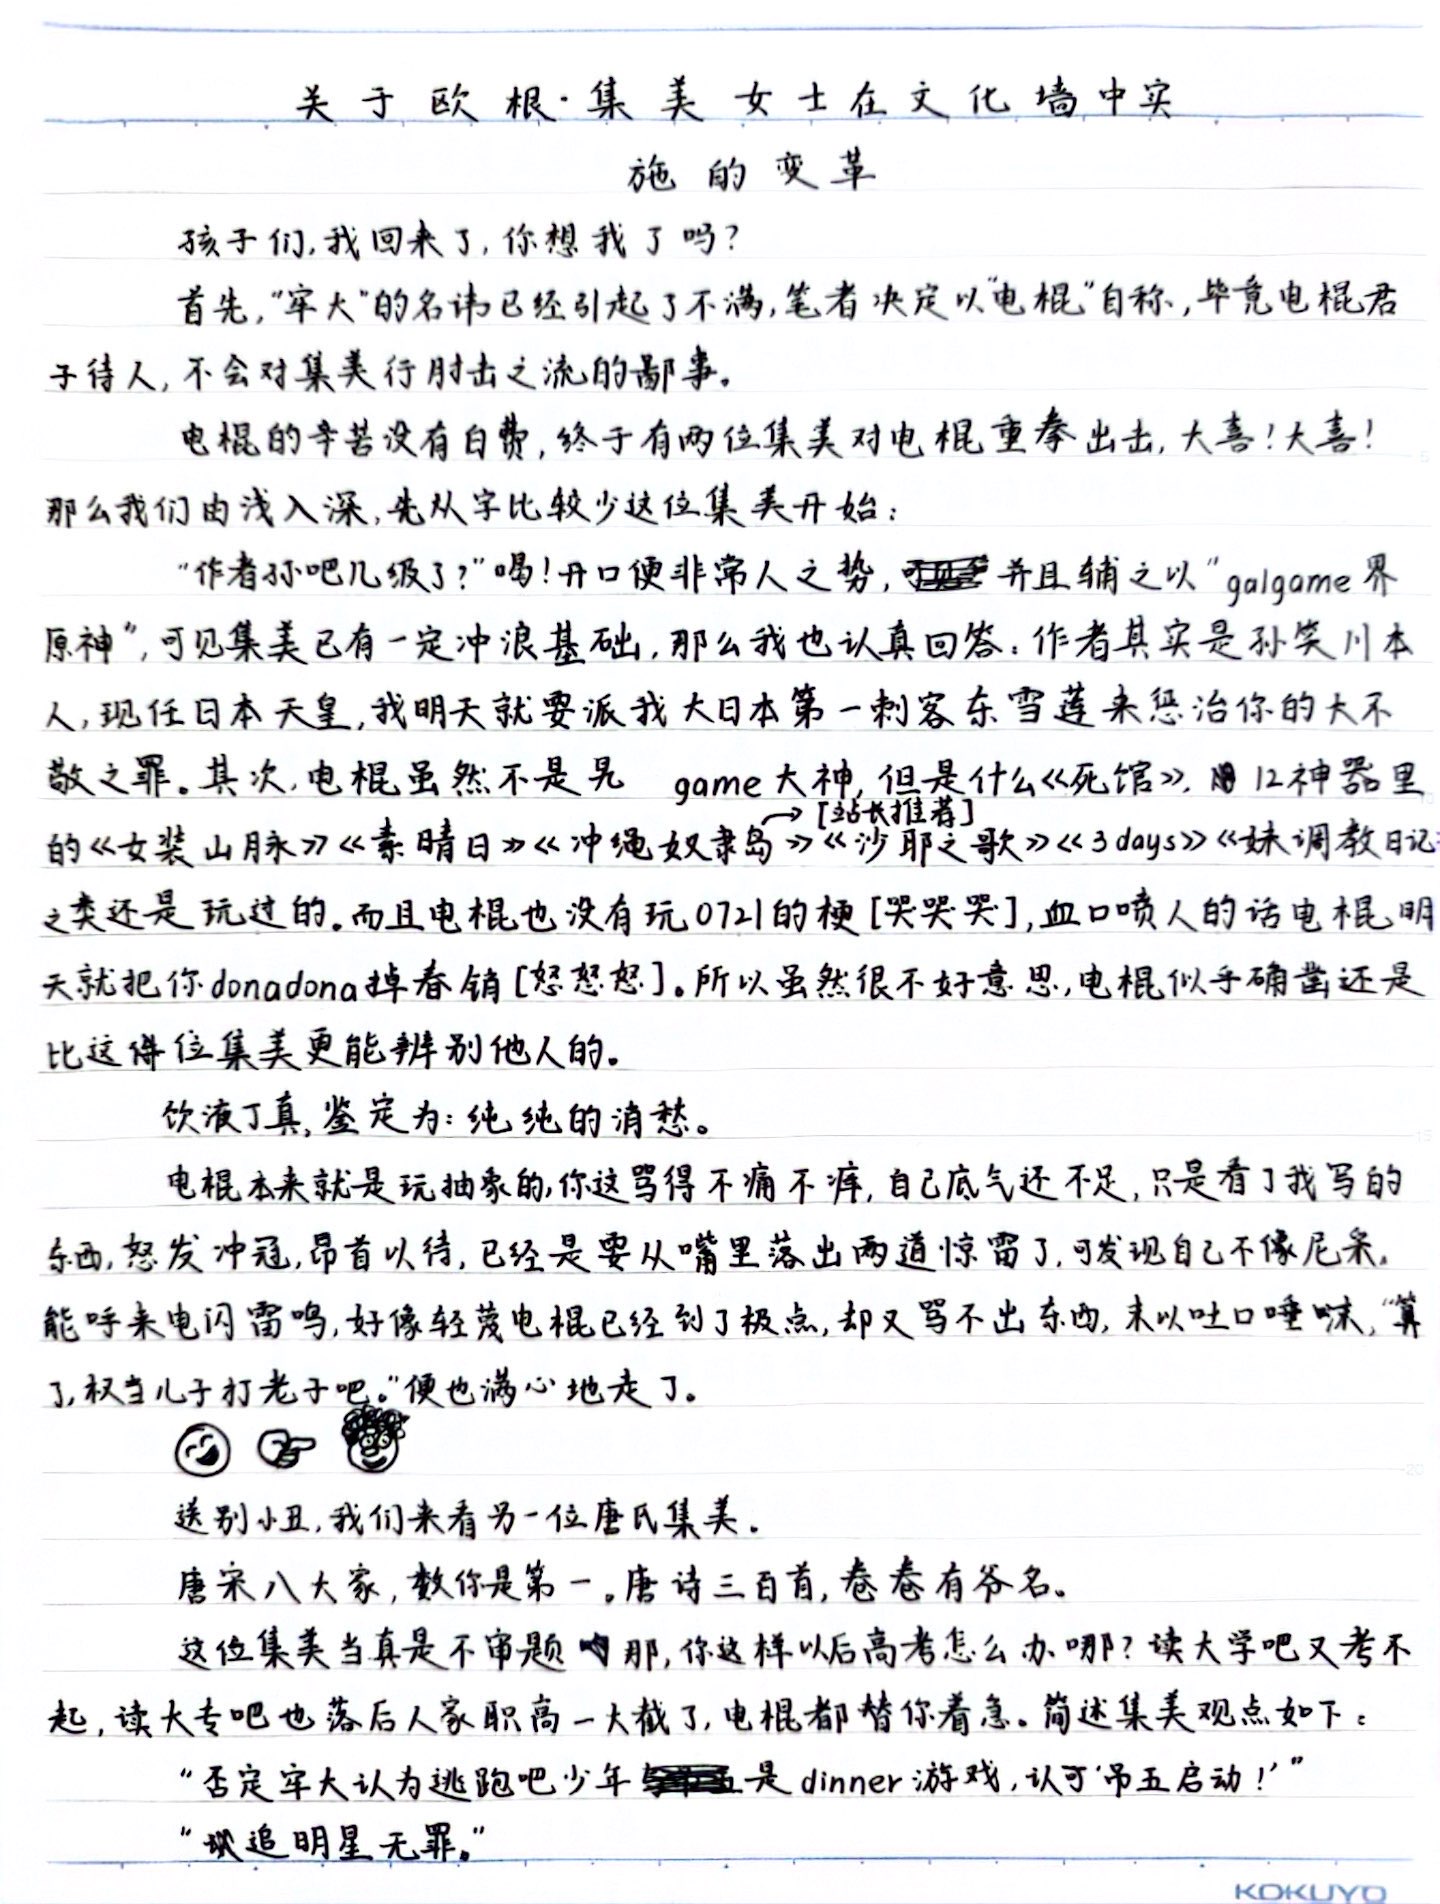 关于欧根·集美女士在文化墙中实
施的变革
孩子们,我回来了,你想我了吗?
首先,"牢大"的名讳已经引起了不满,笔者决定以"电棍"自称,毕竟电棍君
子待人,不会对集美行肘击之流的鄙事。
电棍的辛苦没有白费,终于有两位集美对电棍重拳出击,大喜!大喜!
那么我们由浅入深,先从字比较少这位集美开始:
"作者孙吧几级了?"喝!开口便非常人之势,并且辅之以"galgame界
原神",可见集美已有一定冲浪基础,那么我也认真回答:作者其实是孙笑川本
人,现任日本天皇,我明天就要派我大日本第一刺客东雪莲来惩治你的大不
敬之罪。其次,电棍虽然不是 game大神,但是什么《死馆》,12神器里
→[站长推荐]
的《女装山脉》《素晴日》《冲绳奴隶岛》《沙耶之歌》《3days》《妹调教日记》
之类还是玩过的。而且电棍也没有玩0721的梗[哭哭哭],血口喷人的话电棍明
天就把你donadona掉春销[怒怒怒]。所以虽然很不好意思,电棍似乎确凿还是
比这位集美更能辨别他人的。
饮液丁真,鉴定为:纯纯的消愁。
电棍本来就是玩抽象的,你这骂得不痛不痒,自己底气还不足,只是看了我写的
东西,怒发冲冠,昂首以待,已经是要从嘴里落出两道惊雷了,可发现自己不像尼采,
能呼来电闪雷鸣,好像轻蔑电棍已经到了极点,却又骂不出东西,末以吐口唾沫,"算
了,权当儿子打老子吧。"便也满心地走了。
送别小丑,我们来看另一位唐氏集美。
唐宋八大家,数你是第一。唐诗三百首,卷卷有爷名。
这位集美当真是不审题那,你这样以后高考怎么办哪?读大学吧又考不
起,读大专吧也落后人家职高一大截了,电棍都替你着急。简述集美观点如下:
"否定牢大认为逃跑吧少年是dinner游戏,认可'吊五启动!'"
"追明星无罪。"
KOKUYO